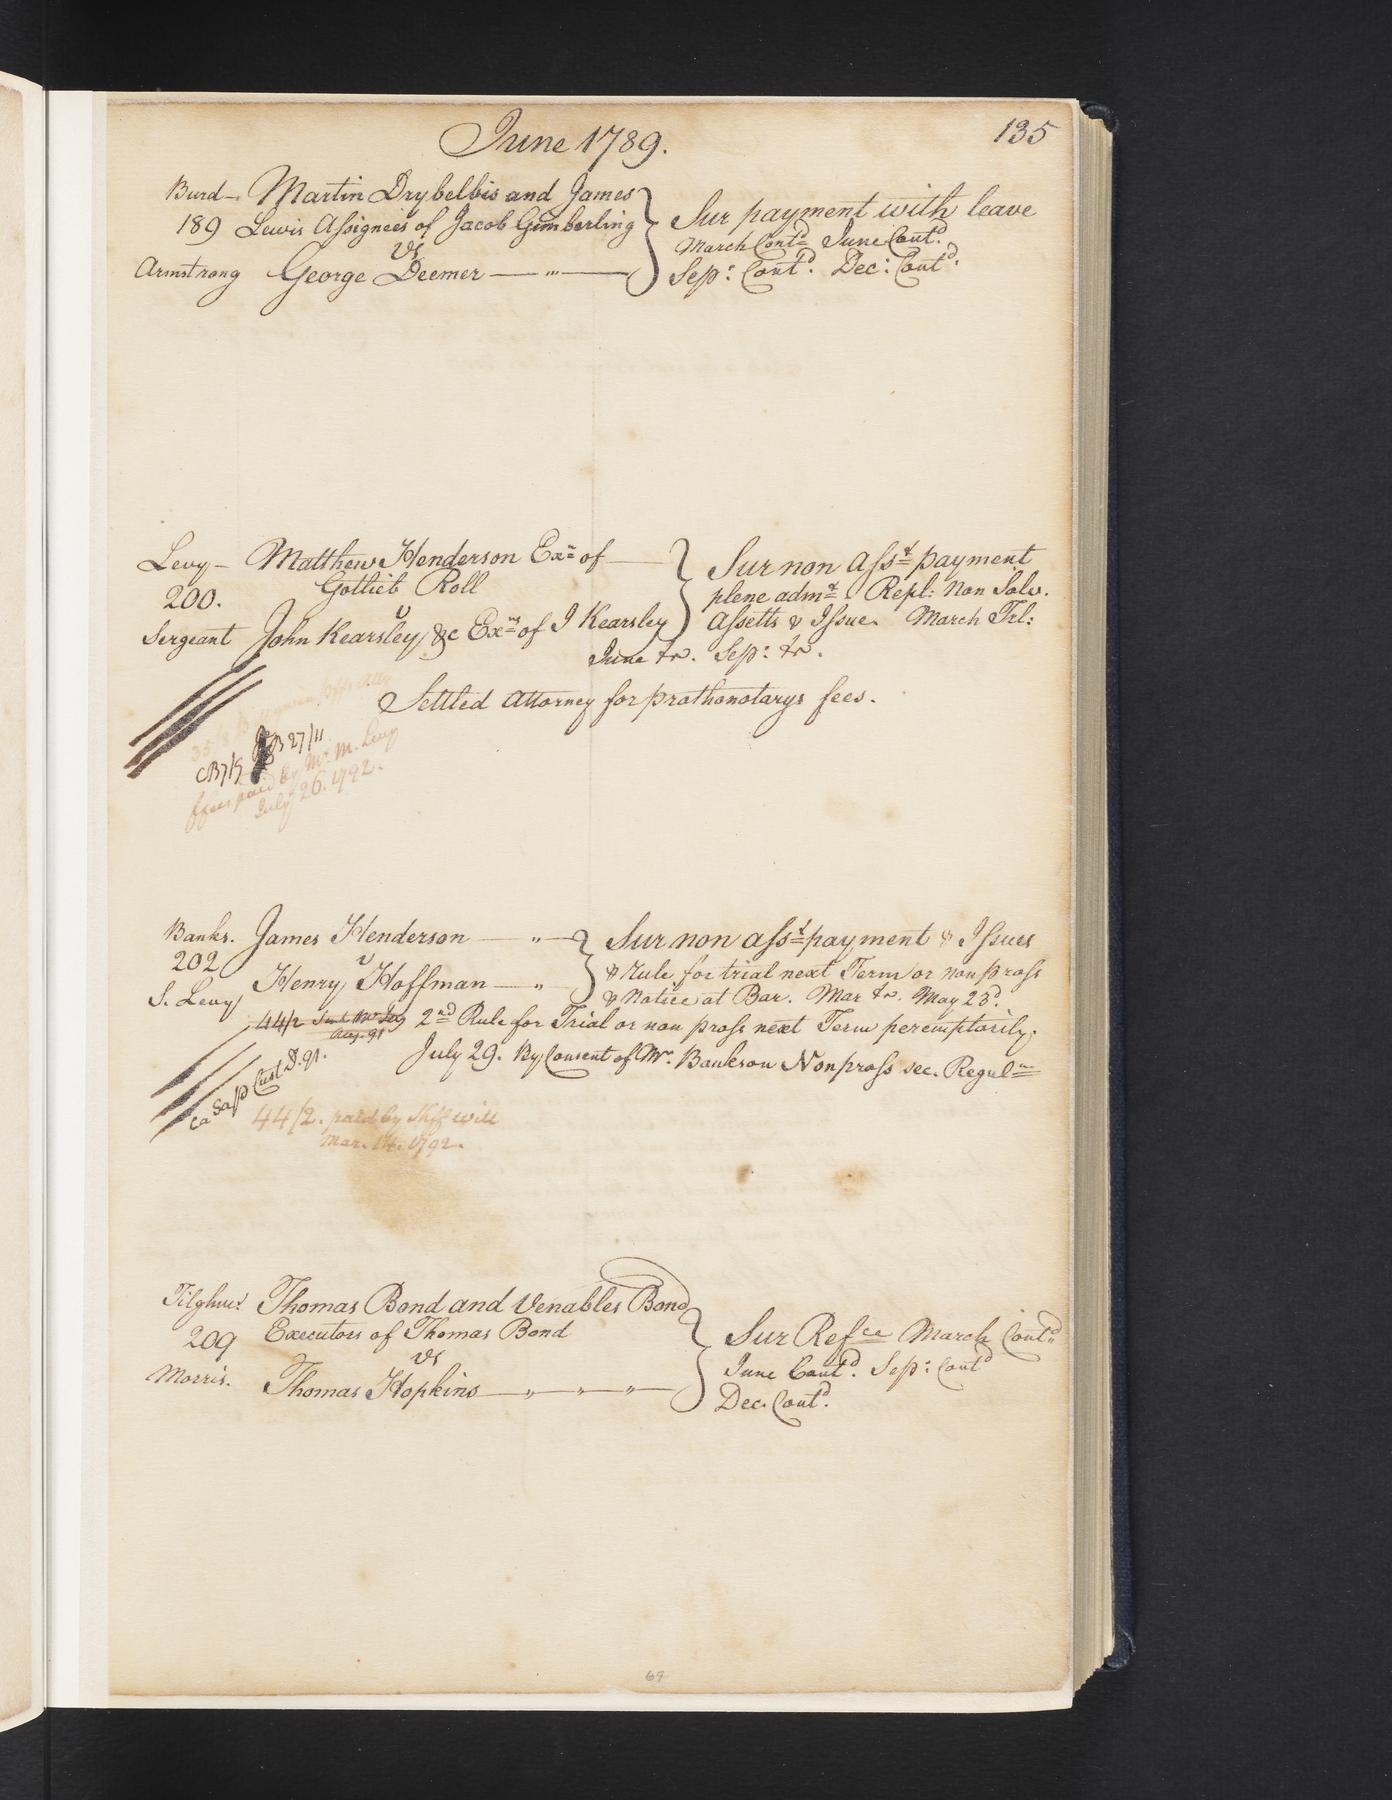 June 1789.
135
Burd— Martin Drybelbis and James
189 Lewis Assignees of Jacob Gimberling
vs
Armstrong George Deemer — " —
Sur payment with leave
March Contd June Contd.
Sep: Contd. Dec: Contd.
Levy— Matthew Henderson Exr of —
200. Gotlieb Roll
v
Sergeant John Kearsley &c Exrs of J Kearsley
Sur non Asst payment
plene admt. Repl: Non Solv.
Assetts & Issue. March Trl:
June tr. Sep: tr.
Settled Attorney for prothonotarys fees.
CB7/5 B27/11
ffees paid by Mr. M. Levy
July 26. 1792.
Banks. James Henderson — " —
202 v
S. Levy Henry Hoffman — " —
Sur non asst payment & Issues
& Rule for trial next Term or non pross
& Notice at Bar. Mar tr. May 23d.
44/2 Aug. 91
2nd Rule for Trial or non pross next Term peremptorily.
July 29. By Consent of Mr. Bankson Nonpross sec. Regulm
Ca Sap Cust D. 91.
44/2. paid by Shff Will
Mar. 14. 1792.
Tilghm: Thomas Bond and Venables Bond
209 Executors of Thomas Bond
vs
Morris. Thomas Hopkins — " — " — " —
Sur Refce March Contd
June Contd. Sep: Contd
Dec. Contd.
69